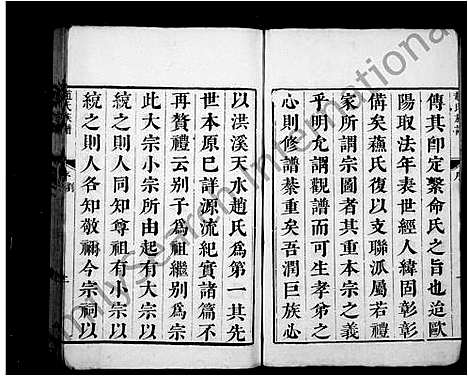 傳其卽定繫命氏之旨也迨歐
陽取法年表世經人緯固彰彰
備矣蘓氏復以支聯派屬若禮
家所謂宗圖者其重本宗之義
乎明允謂觀譜而生孝弟之
心則修譜綦重矣吾潤巨族必
以洪溪天水趙氏為第一其先
世本原已詳源流紀實諸篇不
再贅禮云别子為祖繼别為宗
此大宗小宗所由起有大宗以
統之則人同知尊祖有小宗以
統之則人各知敬禰今宗祠以
FamilySearch International